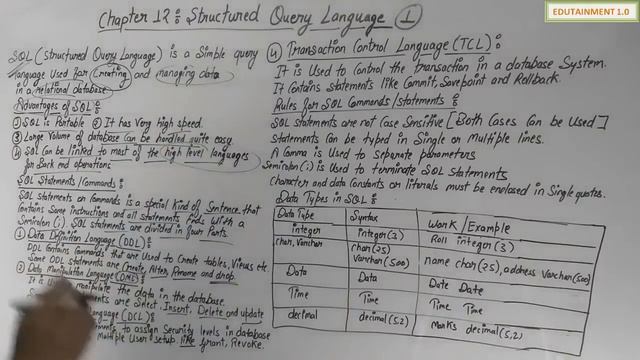 EDUTAINMENT 1.0
Chapter 12: Structured Query Language ①
SQL (Structured Query Language) is a Simple query
language Used for Creating and managing data
in a relational database
Advantages of SQL:
① SQL is Portable ② It has Very high speed.
③ Large Volume of database can be handled quite easy.
④ SQL can be linked to most of the high level languages
for Back end operations
SQL Statements/Commands:
SQL statements or Commands is a special kind of Sentence that
Contains Some instructions and all statements Ends With a
Semicolon (;) SQL statements are divided in four Parts.
① Data Definition Language (DDL):
DDL Contains Commands that are used to Create tables, Views etc.
Some DDL statements are Create, Alter, Rename and drop.
② Data Manipulation Language (DML):
It is manipulate the data in the database.
are Select, Insert, Delete and update
Language (DCL):
to assign Security levels in database
Multiple User setup. like Grant, Revoke.
4) Transaction Control Language (TCL):
It is Used to Control the transaction in a database System.
It Contains statements like Commit, Savepoint and Rollback.
Rules for SQL Commands/statements:
SQL statements are not Case Sensitive [Both Cases Can be Used]
Statements can be typed in Single or Multiple lines.
A Comma is Used to separate parameters
Semicolon(;) is Used to terminate SQL STATEMENTS
Character and data Constants or literals must be enclosed in Single quotes.
Data Types in SQL:
Data Type Syntax Work / Example
integer integer(2) Roll integer(3)
char, Varchar char(25) Varchar(500) name char(25), address Varchar(500)
Data Data Date Date
Time Time Time Time
decimal decimal(5,2) Marks decimal(5,2)